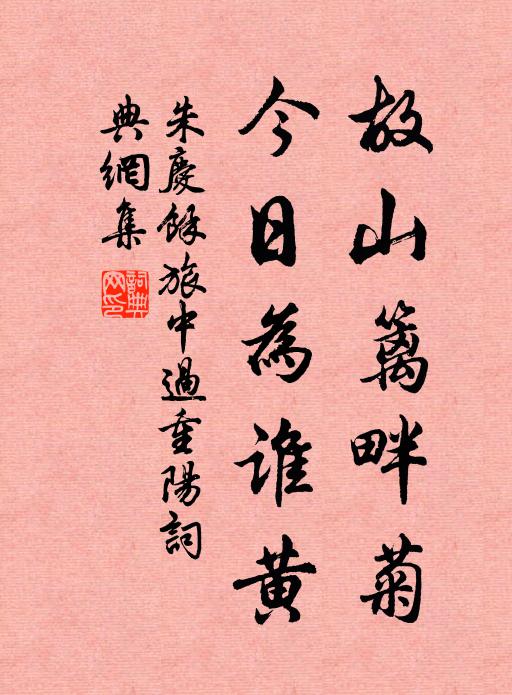 故山篱畔菊
今日為谁黄
朱慶餘旅中過重陽詞
典網集
詞典
网印